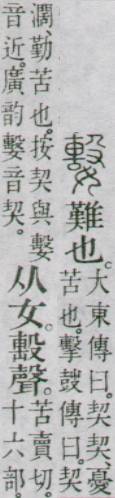 㜇難也。大東傳曰。契契憂
苦也。擊鼓傳曰。契
濶、勤苦也。按契與㜇
音近。廣韵㜇音契。从女。毄聲。苦賣切。
十六部。